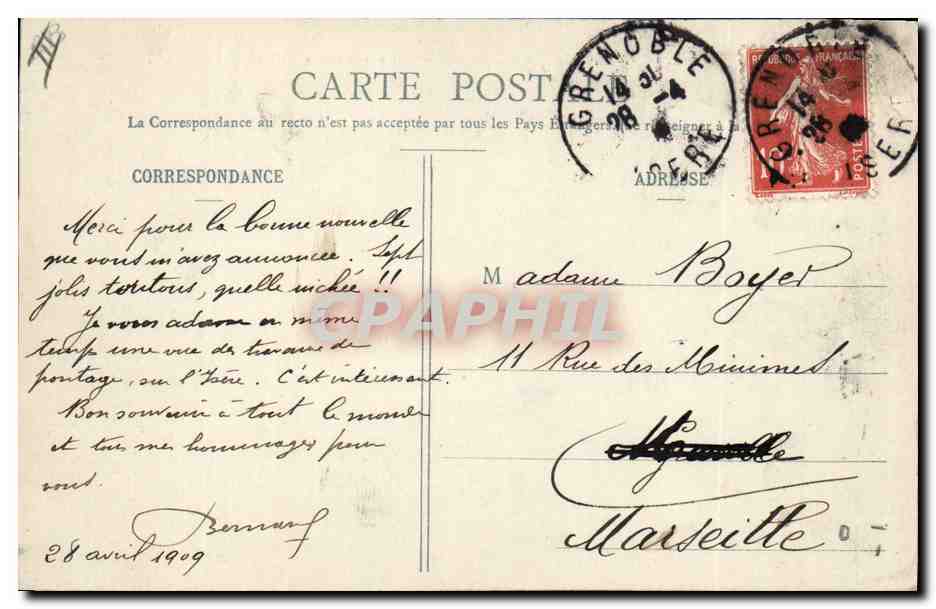 CARTE POSTALE
La Correspondance au recto n'est pas acceptée par tous les Pays Étrangers. Se renseigner à la
CORRESPONDANCE
Merci pour la bonne nouvelle
que vous m'avez annoncée. Sept
jolis toutous, quelle nichée !!
Je vous adresse en même
temps une vue des travaux de
pontage, sur l'Isère. C'est intéressant.
Bon souvenir à tout le monde
et tous mes hommages pour
vous.
Bernard
28 avril 1909
ADRESSE
Madame Boyer
11 Rue des Minimes
Marseille
GRENOBLE
14
28 -4
ISERE
GRENOBLE
14
28
ISERE
REPUBLIQUE FRANÇAISE
10
POSTES
CPAPHIL